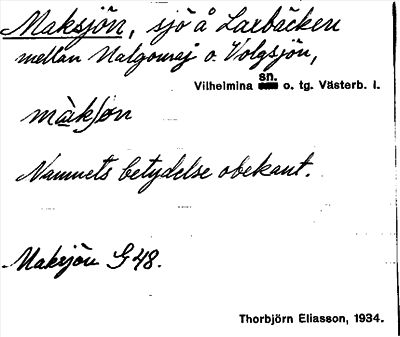 Maksjön, sjö å Laxbäcken
mellan Nalgomaj o. Volgsjön,
sn.
Vilhelmina o. tg. Västerb. l.
màkʃøn
Namnets betydelse obekant.
Maksjön G 48.
Thorbjörn Eliasson, 1934.